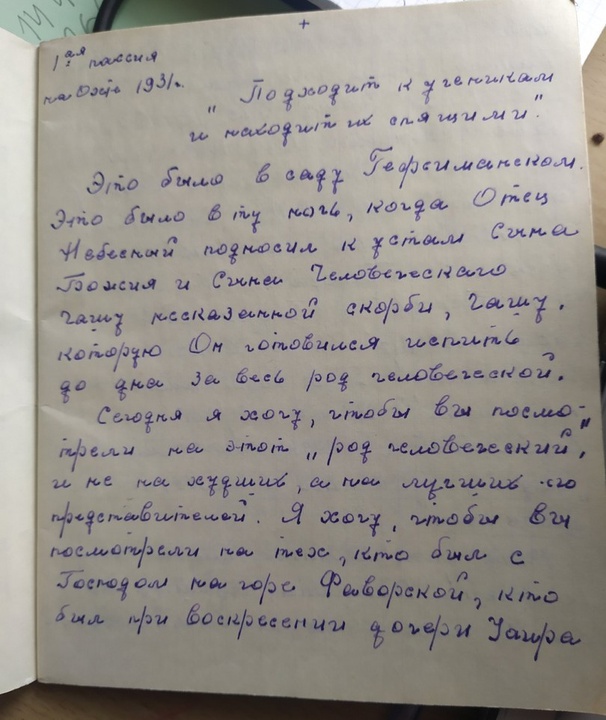 +
1ая пассия
на Охте 1931г.
"Подходит к ученикам
и находит их спящими".
Это было в саду Гефсиманском.
Это было в ту ночь, когда Отец
Небесный подносил к устам Сына
Божия и Сына Человеческаго
чашу несказанной скорби, Чашу,
которую Он готовился испить
до дна за весь род человеческой.
Сегодня я хочу, чтобы вы посмо-
трели на этот „род человеческий",
и не на худших, а на лучших его
представителей. Я хочу, чтобы вы
посмотрели на тех, кто был с
Господом на горе Фаворской, кто
был при воскресении дочери Иаира